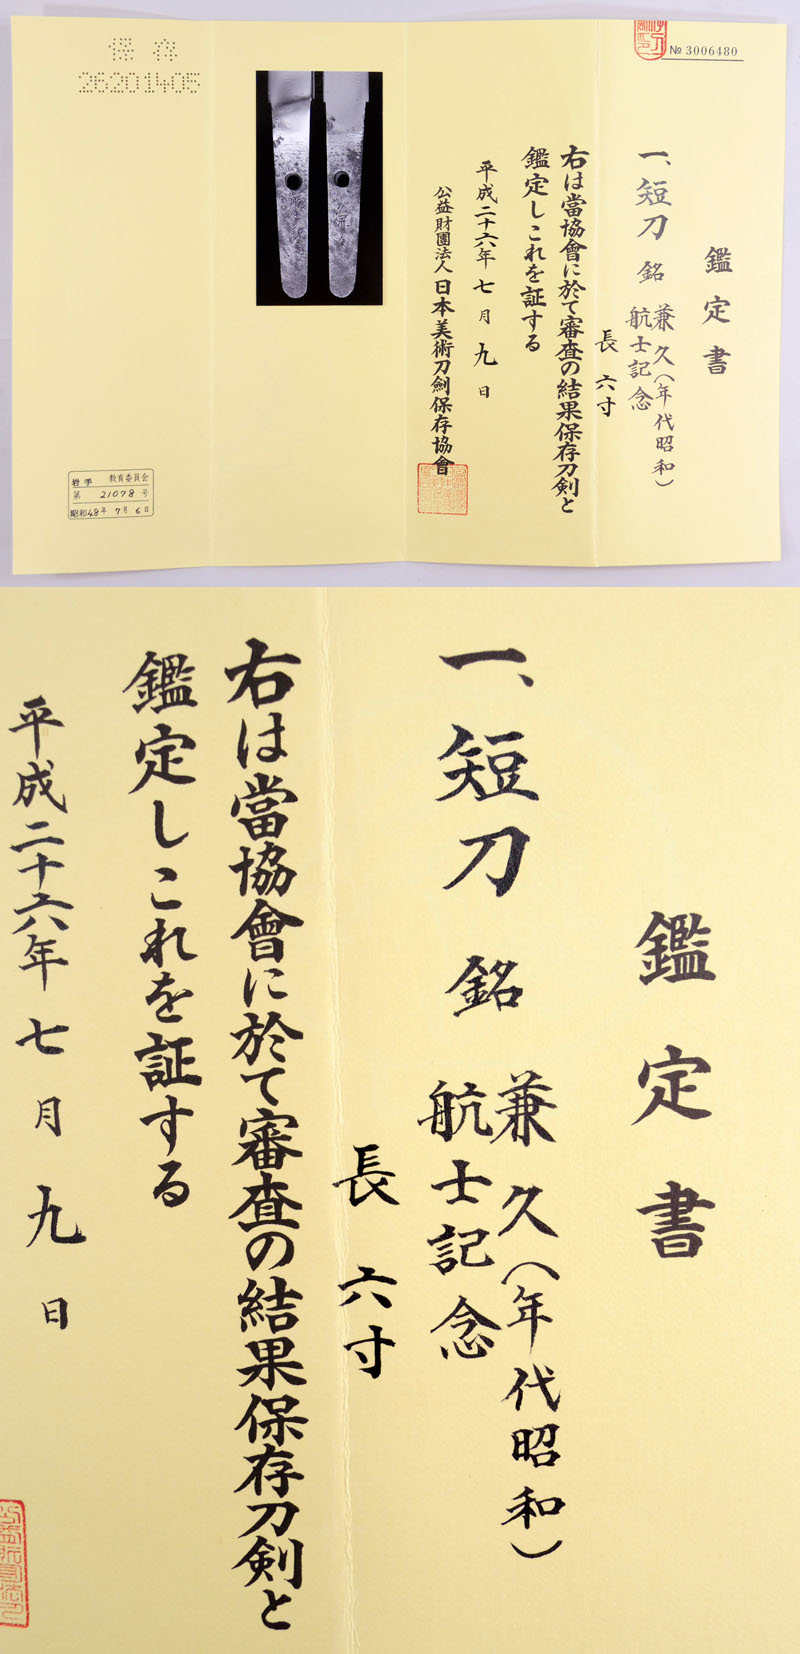 № 3006480
鑑定書
一、短刀 銘 兼久(年代昭和)
航士記念
長 六寸
右は當協會に於て審査の結果保存刀剣と
鑑定しこれを証する
平成二十六年 七月 九日
公益財團法人 日本美術刀劍保存協會
保存
26201405
岩手 教育委員会
第 21078 号
昭和48年 7月 6日
鑑定書
一、短刀 銘 兼久(年代昭和)
航士記念
長 六寸
右は當協會に於て審査の結果保存刀剣と
鑑定しこれを証する
平成二十六年 七月 九日